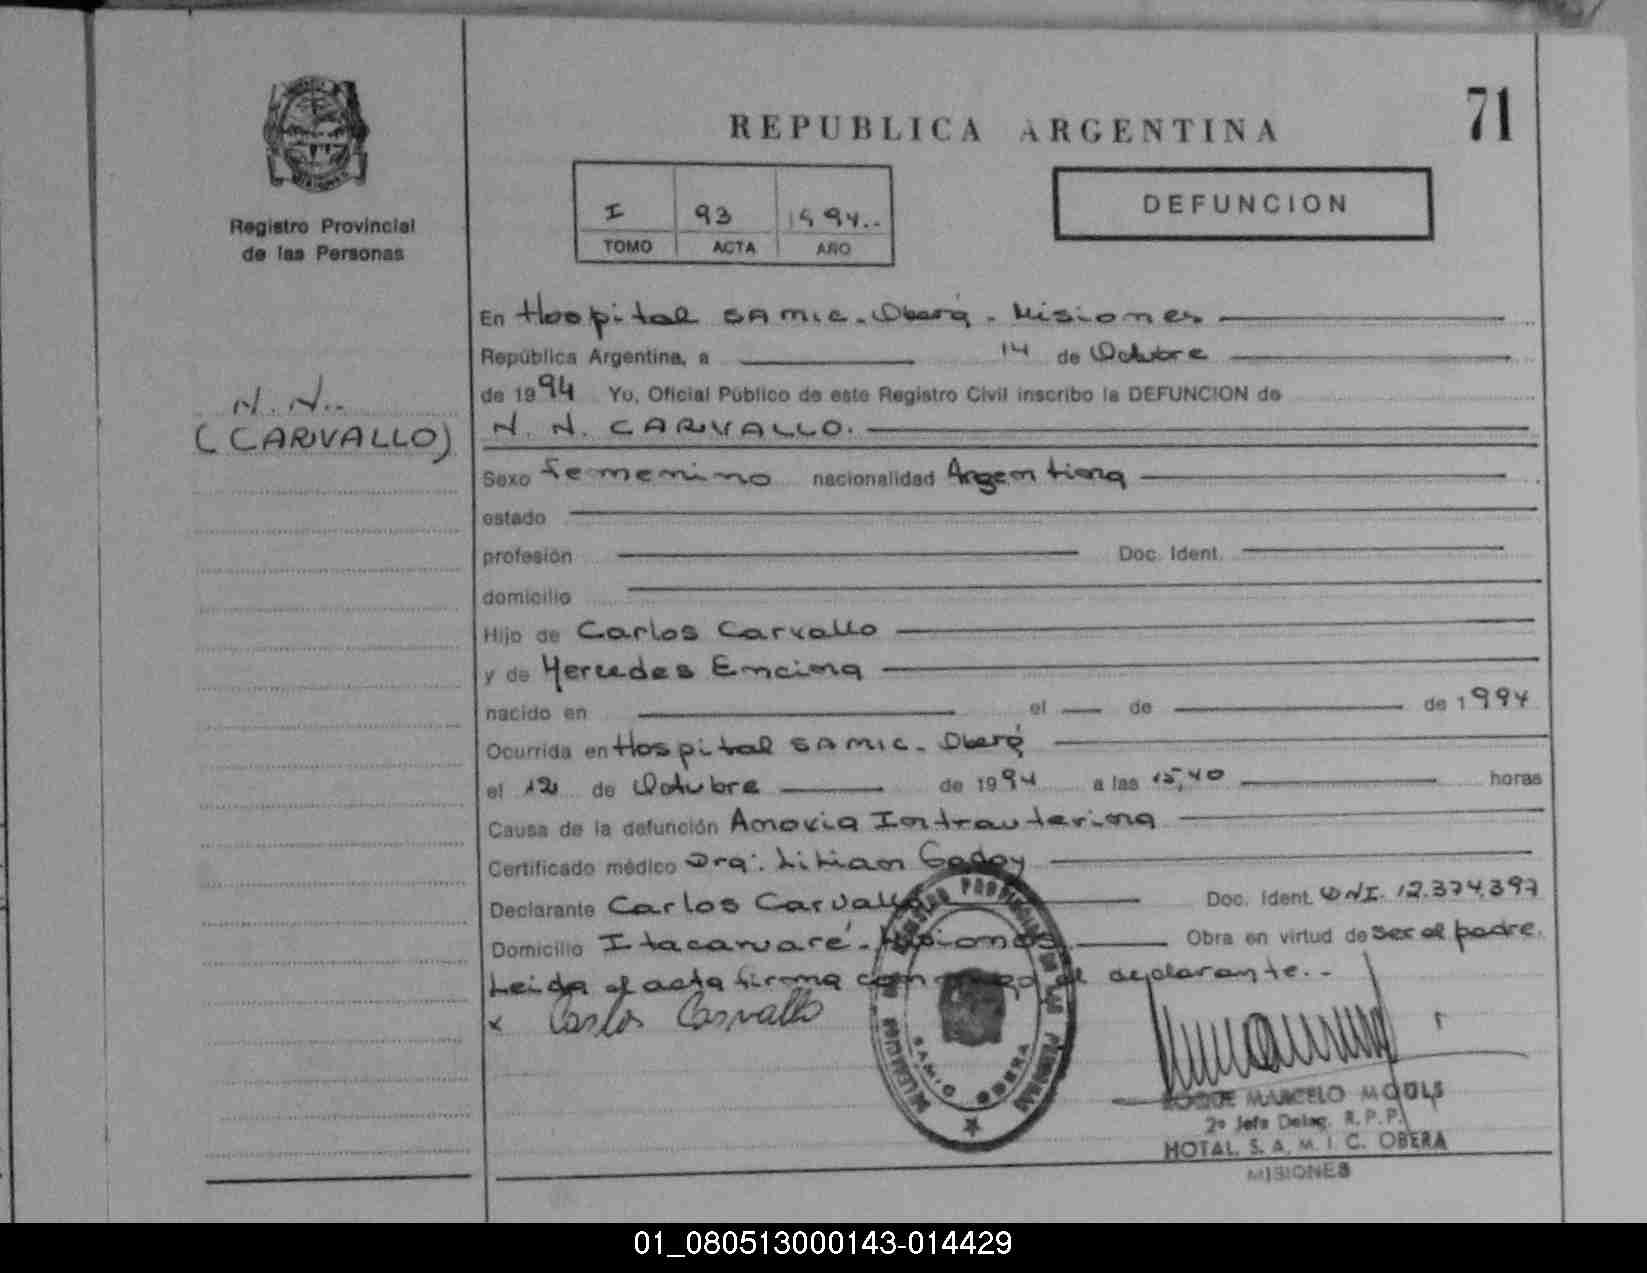 71
REPUBLICA ARGENTINA
Registro Provincial
de las Personas
I 93 1994..
TOMO ACTA AÑO
DEFUNCION
N.N..
(CARVALLO)
En Hospital SAMIC. Oberá. Misiones
República Argentina, a 14 de Octubre
de 1994 Yo, Oficial Público de este Registro Civil inscribo la DEFUNCION de
N. N. CARVALLO.
Sexo femenino nacionalidad Argentina
estado
profesión Doc. Ident.
domicilio
Hijo de Carlos Carvallo
y de Mercedes Encina
nacido en el de de 1994
Ocurrida en Hospital SAMIC. Oberá
el 12 de Octubre de 1994 a las 15,40 horas
Causa de la defunción Anoxia Intrauterina
Certificado médico Dra: Lilian Godoy
Declarante Carlos Carvallo Doc. Ident. DNI. 12.374.397
Domicilio Itacaruaré. Misiones Obra en virtud de ser el padre.
Leida el acta firma conmigo el declarante..
x Carlos Carvallo
SAMIC OBERA
ROQUE MARCELO
2º Jefe Deleg. R.P.P.
HOTAL. S. A. M. I. C. OBERA
MISIONES
01_080513000143-014429